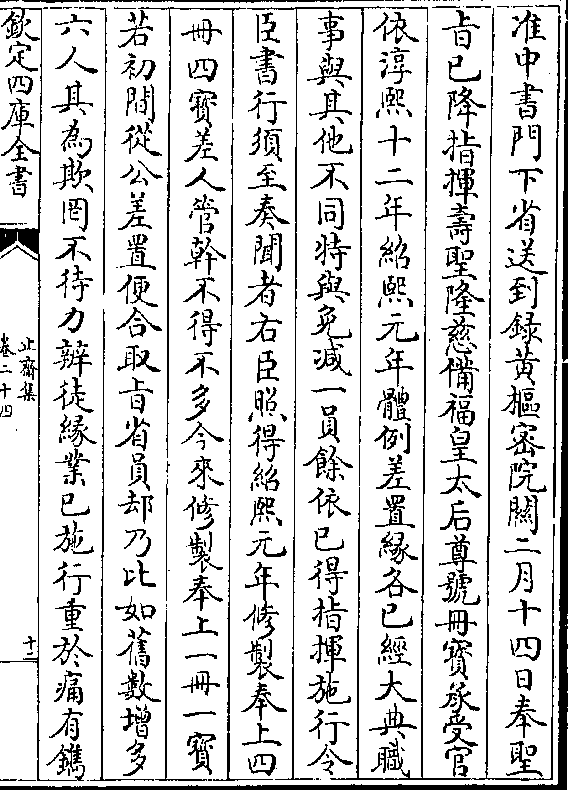 准中書門下省送到録黄樞密院闗二月十四日奉聖
㫖已降指揮壽聖隆慈備福皇太后尊號冊寳承受官
依淳熙十二年紹熙元年體例差置縁各已經大典職
事與其他不同特與免減一員餘依已得指揮施行令
臣書行須至奏聞者右臣照得紹熙元年修製奉上四
冊四寳差人管幹不得不多今來修製奉上一冊一寳
若初間從公差置便合取㫖省員却乃比如舊數增多
六人其為欺罔不待力辨徒縁業已施行重於痛有鐫
欽定四庫全書
止齋集
卷二十四
十二